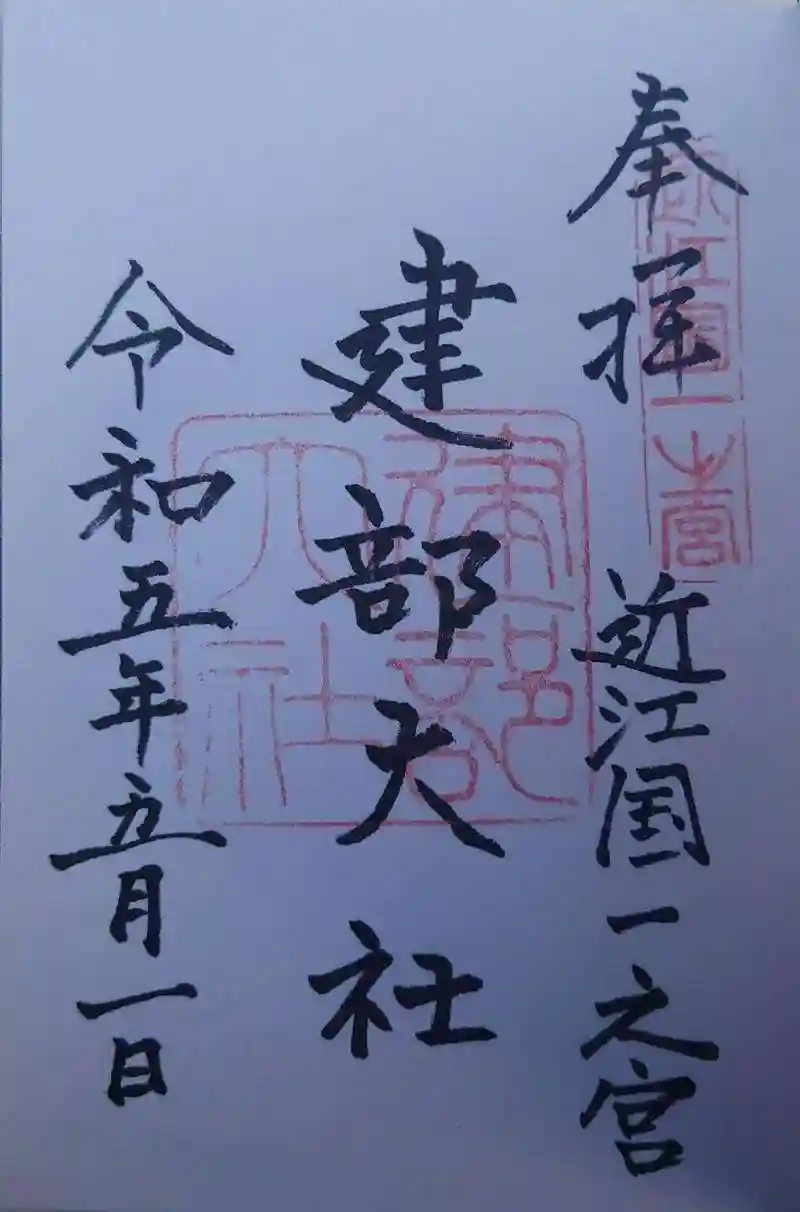 奉拝　近江国一之宮
近江国一之宮
建部大社
建部大社
令和五年五月一日